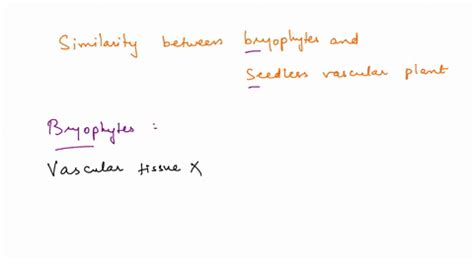 Similarity between bryophytes and
Seedless vascular plant
Bryophytes :
Vascular tissue X